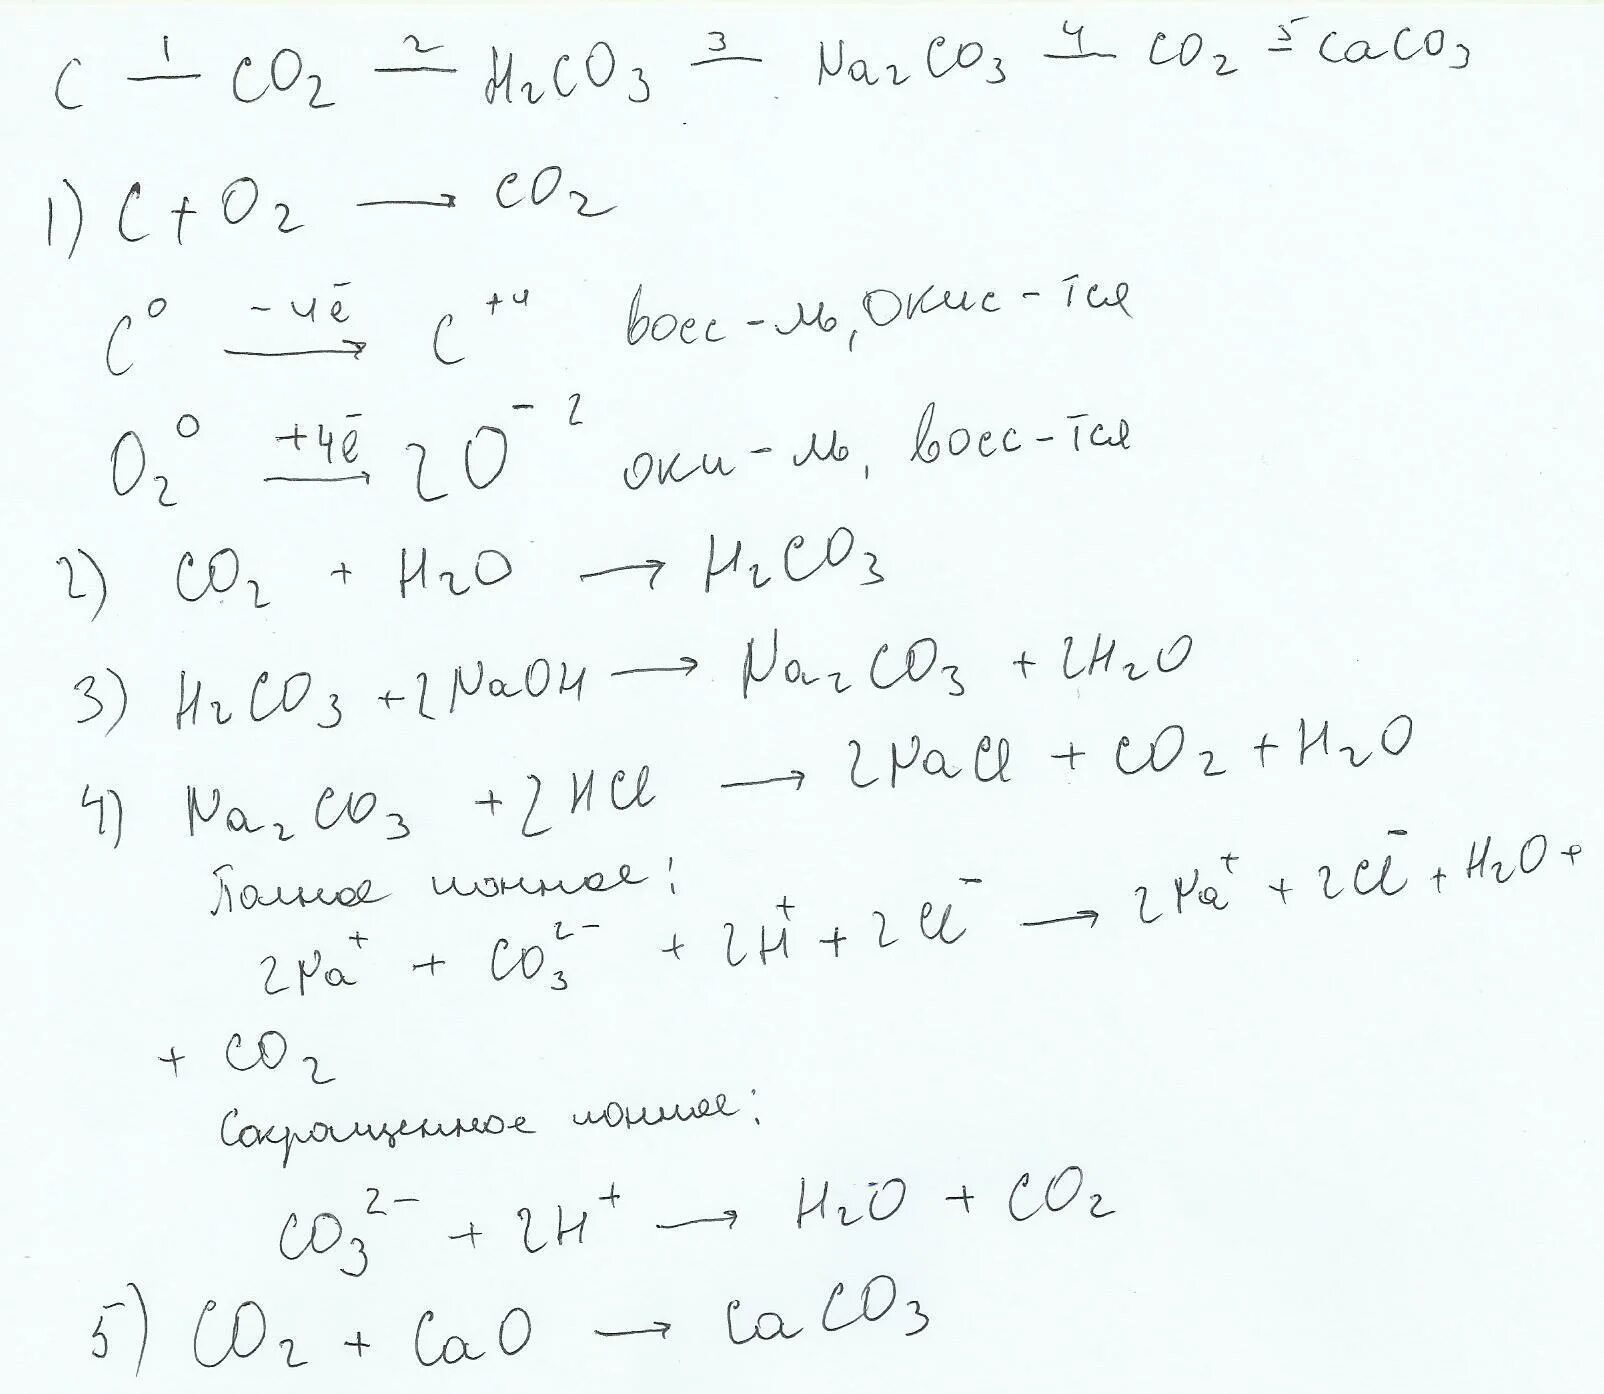 C —1— CO₂ —2— H₂CO₃ —3— Na₂CO₃ —4— CO₂ —5— CaCO₃
1) C + O₂ → CO₂
C⁰ -4ē→ C⁺⁴ восс-ль, окис-тся
O₂⁰ +4ē→ 2O⁻² оки-ль, восс-тся
2) CO₂ + H₂O → H₂CO₃
3) H₂CO₃ + 2NaOH → Na₂CO₃ + 2H₂O
4) Na₂CO₃ + 2HCl → 2NaCl + CO₂ + H₂O
Полное ионное:
2Na⁺ + CO₃²⁻ + 2H⁺ + 2Cl⁻ → 2Na⁺ + 2Cl⁻ + H₂O +
+ CO₂
Сокращенное ионное:
CO₃²⁻ + 2H⁺ → H₂O + CO₂
5) CO₂ + CaO → CaCO₃